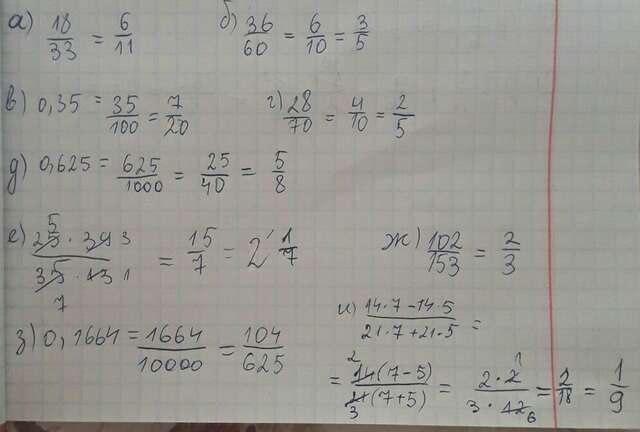 а) 18/33 = 6/11 б) 36/60 = 6/10 = 3/5
в) 0,35 = 35/100 = 7/20 г) 28/70 = 4/10 = 2/5
д) 0,625 = 625/1000 = 25/40 = 5/8
е) 5 25 · 39 3 / 35 · 13 1 7 = 15/7 = 2 1/7 ж) 102/153 = 2/3
з) 0,1664 = 1664/10000 = 104/625 и) 14·7-14·5 / 21·7+21·5 =
= 2 14(7-5) / 3 21(7+5) = 2·2 1 / 3·12 6 = 2/18 = 1/9